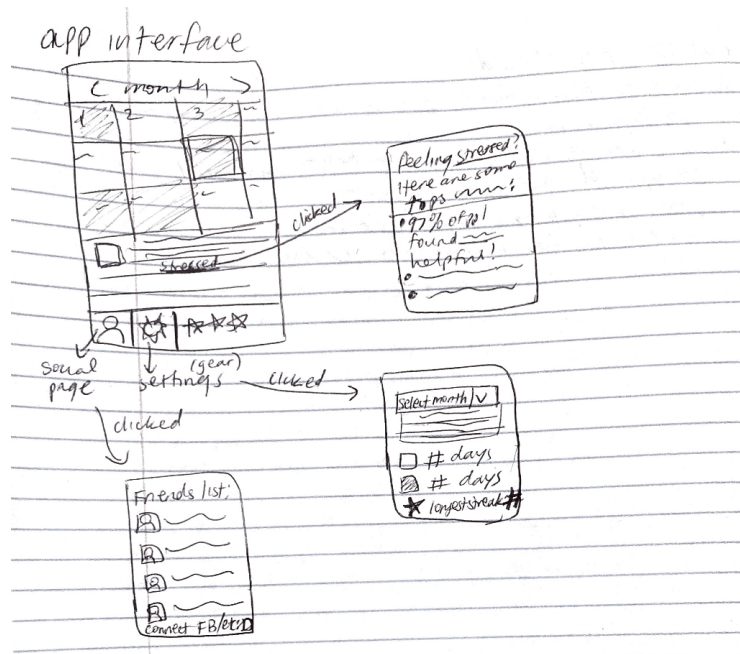 app interface
< month >
1 2 3
stressed
clicked
Feeling stressed?
Here are some
tips
97% of ppl
found
helpful!
social
page
(gear)
settings
clicked
clicked
select month
# days
# days
longest streak #
Friends list:
connect FB/etc